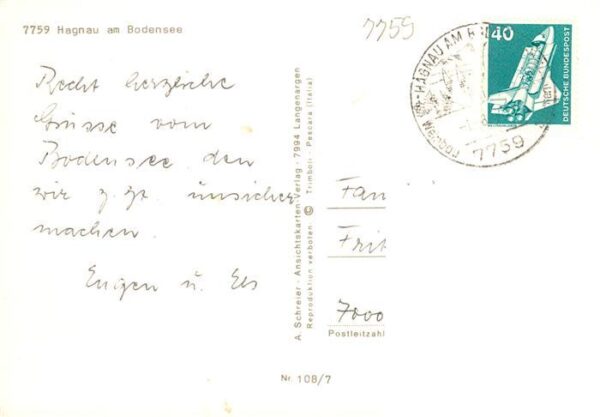 7759 Hagnau am Bodensee
7759
Recht herzliche
Grüsse vom
Bodensee den
wir z. Zt. unsicher
machen.
Eugen u. Els
A. Schreier · Ansichtskarten-Verlag · 7994 Langenargen
Reproduktion verboten © Trimboli · Pescara (Italia)
HAGNAU AM
7759
40
DEUTSCHE BUNDESPOST
Fan
Frit
7000
Postleitzahl
Nr. 108/7